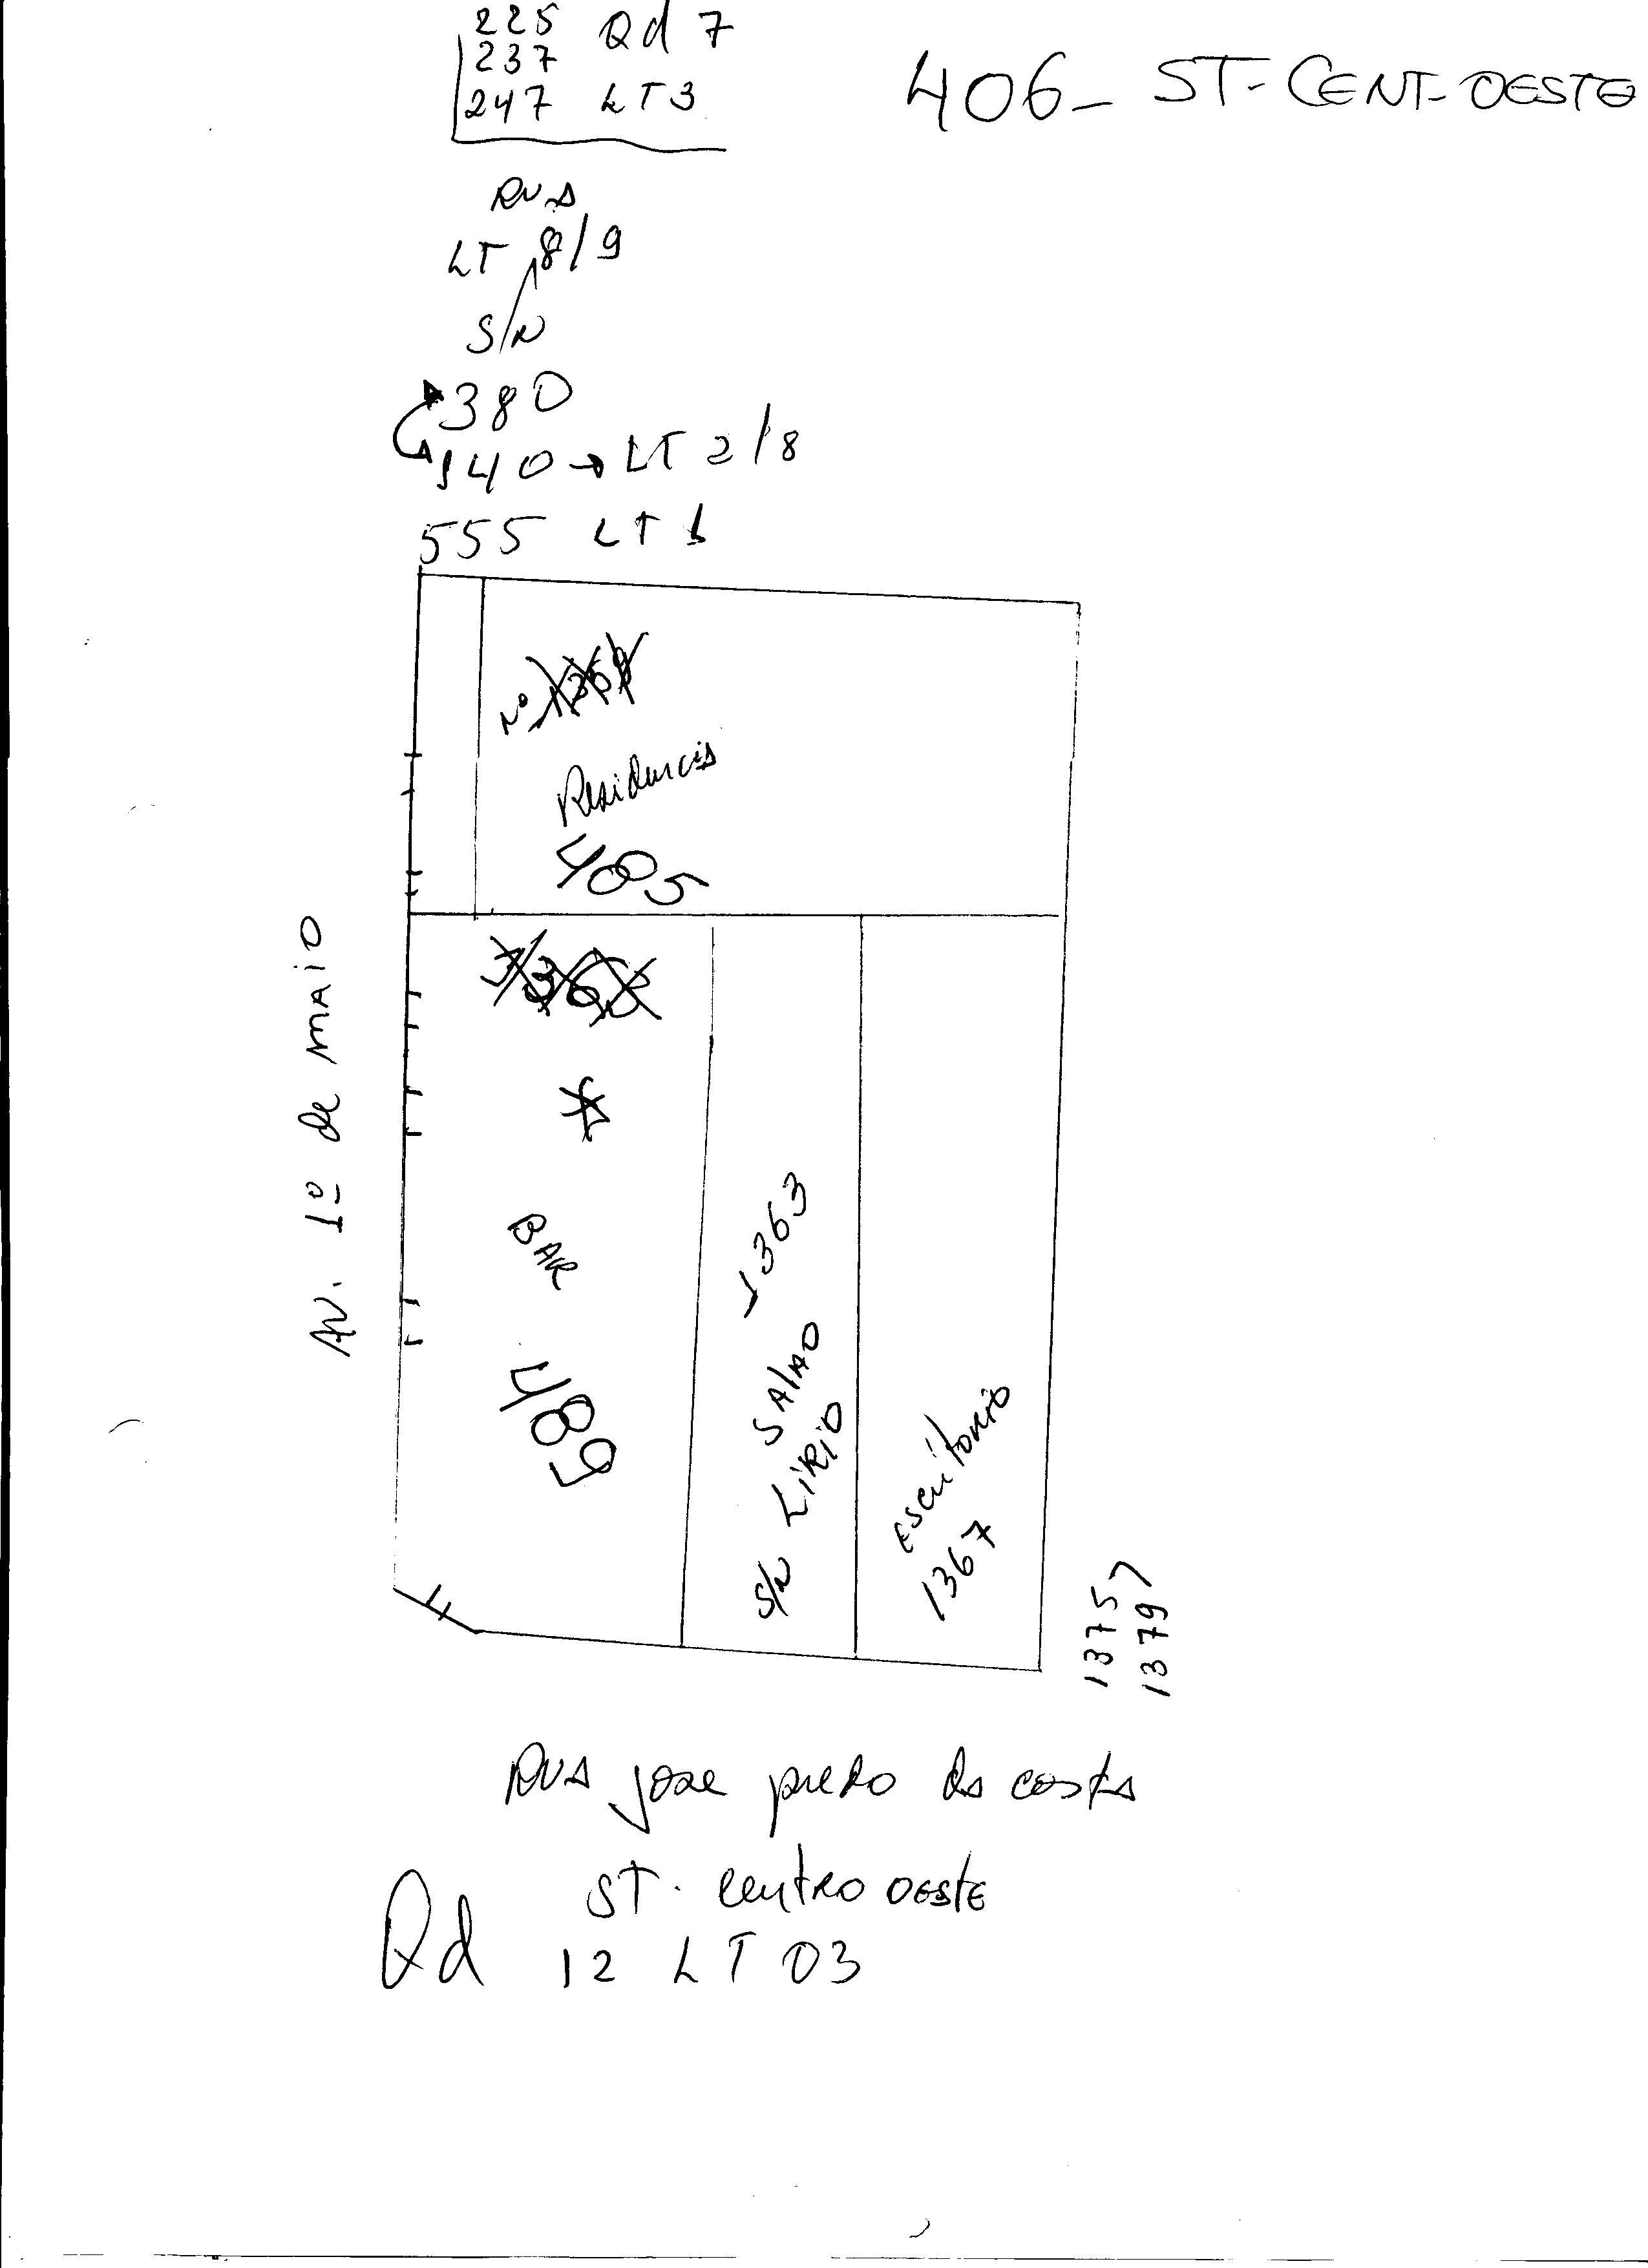 225 Qd 7
237
247 LT 3
406- ST- CENT- OESTE
RUA
LT 8/9
S/N
380
140 → LT 2/8
555 LT 1
Nº
Residencia
485
AV. 1º de MAIO
BAR
489
1363
SALAO
S/N LIRIO
escritorio
1367
1375
1379
RUA jose da costa
ST. centro OESTE
Qd 12 LT 03